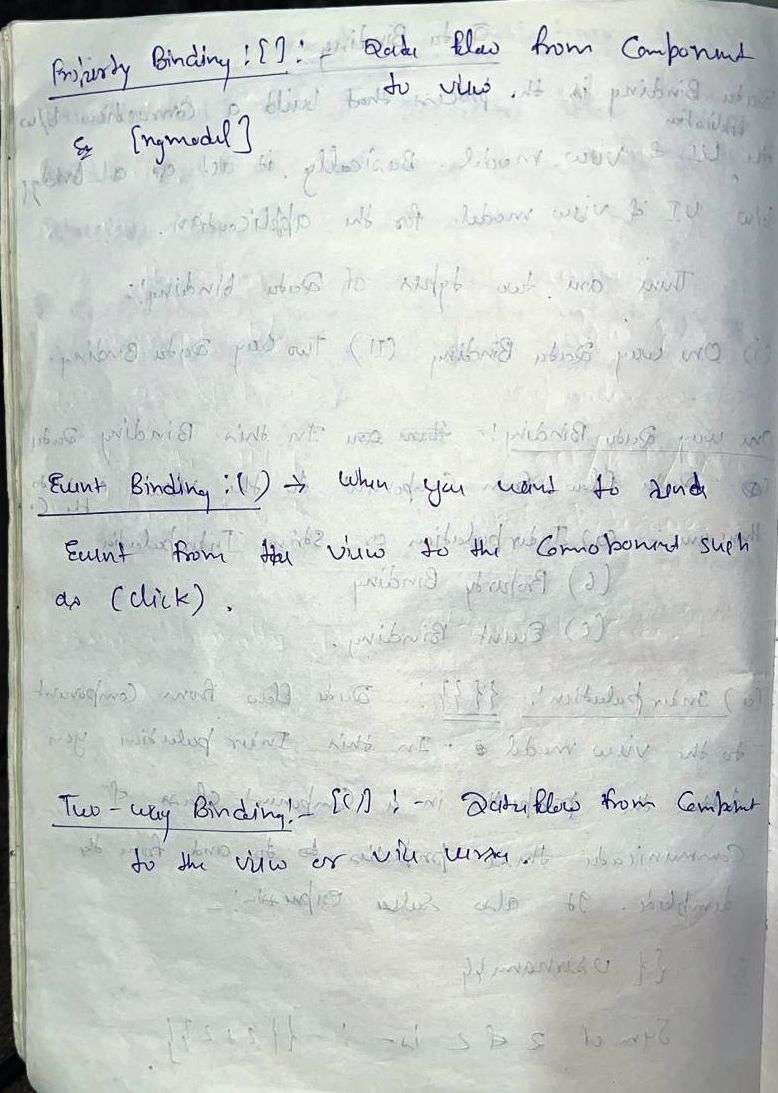 Property Binding :[] :- Data flow from Component
to view.
Ex [ngmodel]
Event Binding :() → When you want to send
Event from the view to the Comnoponent such
as (click).
Two-way Binding:- [()] :- Data flow from Compont
to the view or vice versa.